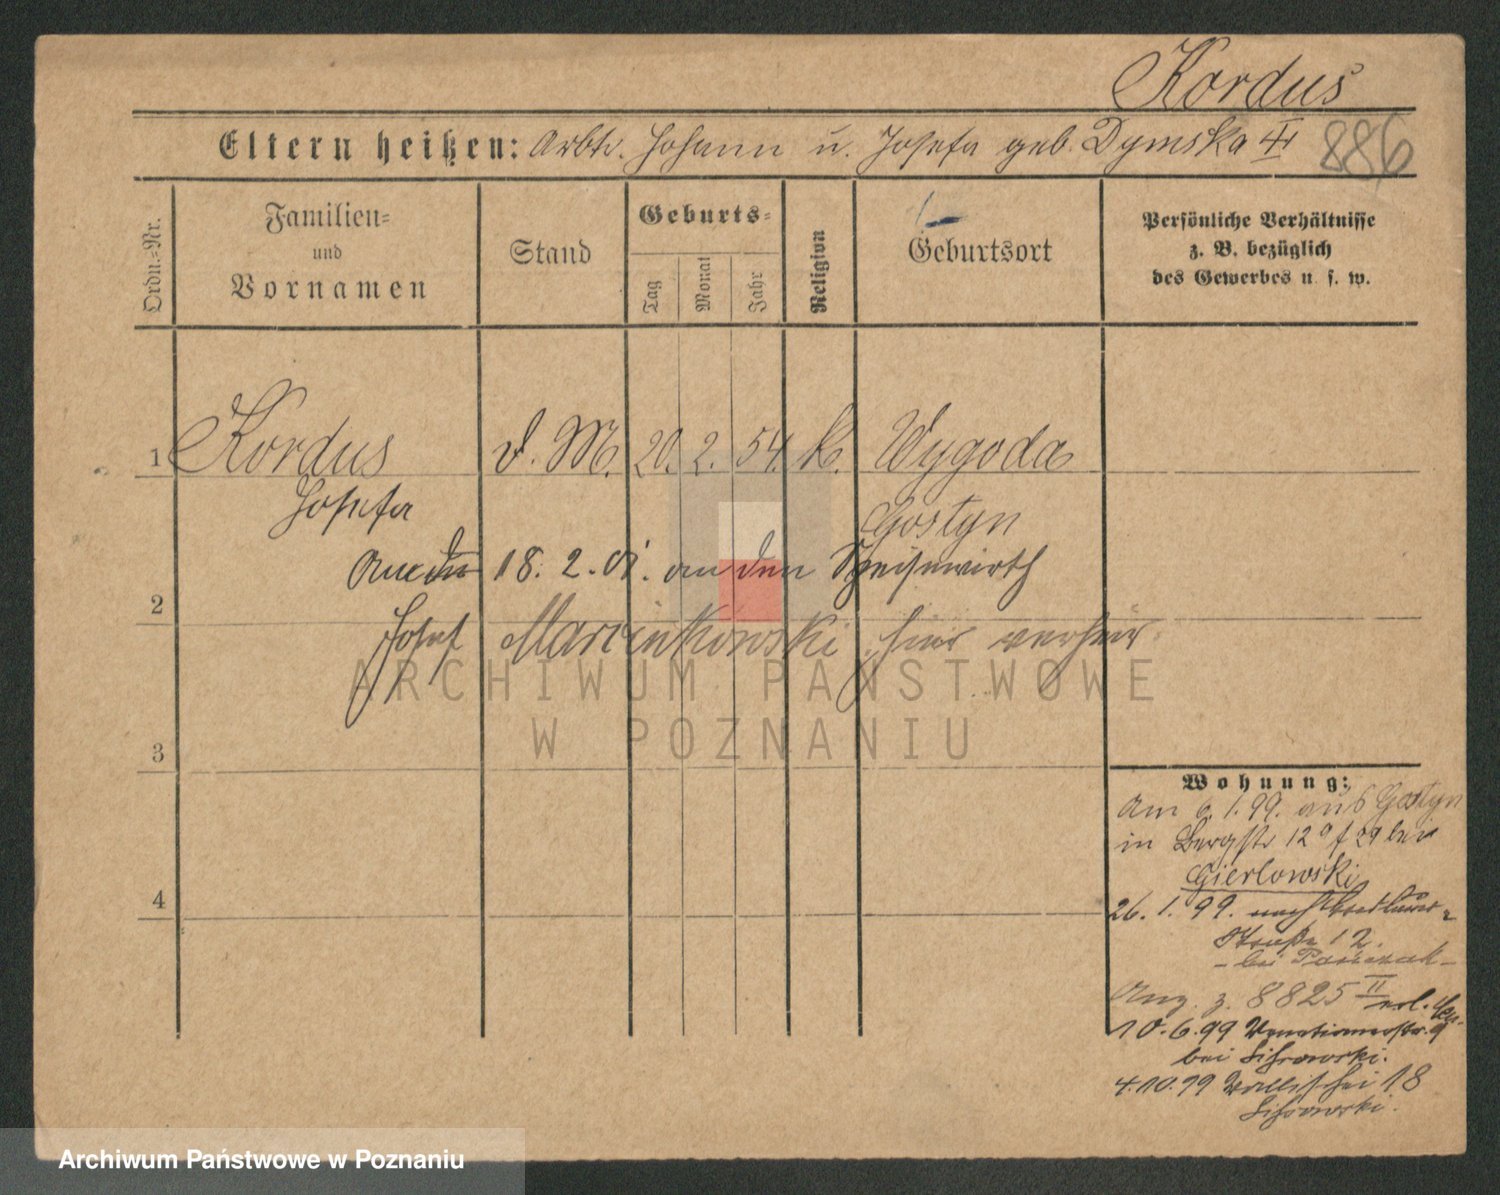 Kordus
Eltern heißen: Arbtr. Johann u. Josefa geb. Dymska III 886
Ordn.-Nr.
Familien-
und
Vornamen
Stand
Geburts-
Tag
Monat
Jahr
Religion
Geburtsort
Persönliche Verhältnisse
z. B. bezüglich
des Gewerbes u. s. w.
1 Kordus d. M. 20. 2. 54. k. Wygoda
Josefa Gostyn
18. 2. 01. an den Speisewirth
2
Josef Marcinkowski hier verheir.
3
Wohnung:
Am 6. 1. 99. aus Gostyn
in Bergstr 12 a f 29 bei
Gierlowski
4
26. 1. 99. nach
Straße 12.
- bei
Anz. z. 8825 II erl.
10. 6. 99 Venetianerstr. 9
bei
4. 10. 99 Wallischei 18
ARCHIWUM PAŃSTWOWE
W POZNANIU
Archiwum Państwowe w Poznaniu